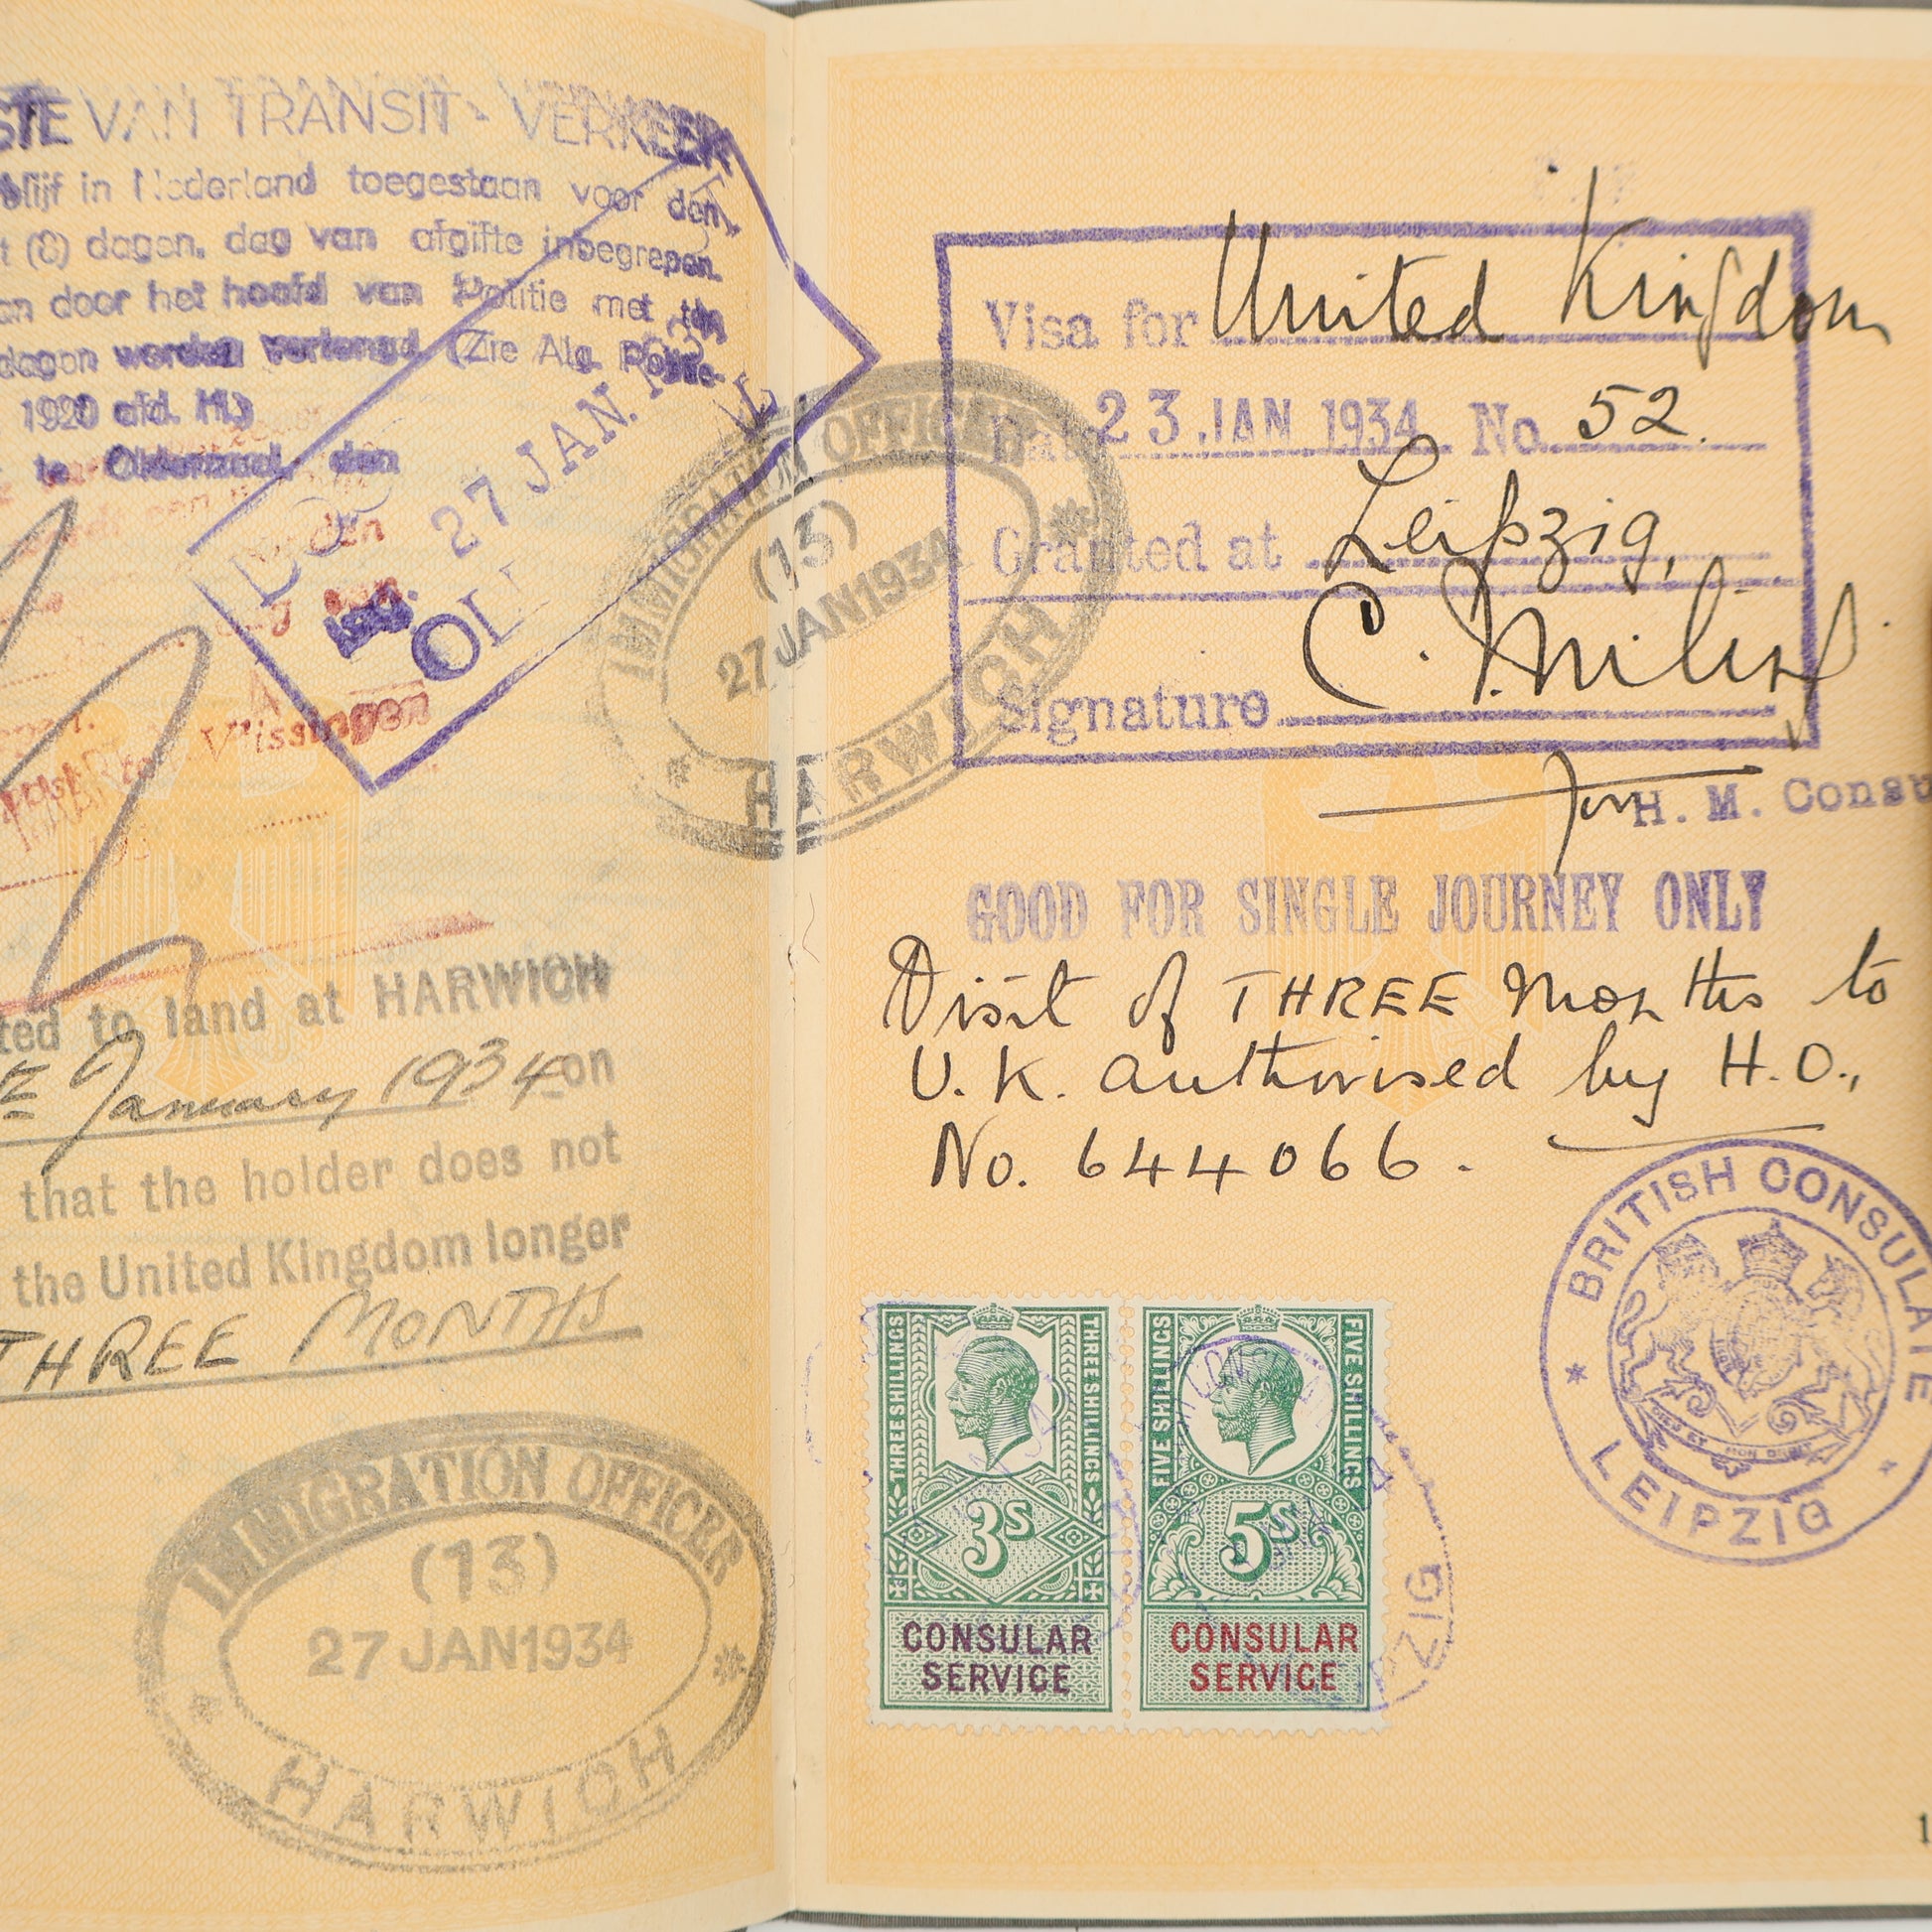 VAN TRANSIT-VERKEER
in Nederland toegestaan voor den
(8) dagen, dag van afgifte inbegrepen.
door het hoofd van Politie met
dagen worden verlengd (Zie Alg.
1920 afd. H)
te Oldenzaal, den
27 JAN.
OL
Vlissingen
to land at HARWICH
January 1934 on
that the holder does not
the United Kingdom longer
THREE MONTHS
IMMIGRATION OFFICER
(13)
27 JAN 1934
HARWICH
IMMIGRATION OFFICER
(13)
27 JAN 1934
HARWICH
Visa for United Kingdom
Date 23 JAN 1934 No. 52.
Granted at Leipzig.
Signature
for H. M. Consu
GOOD FOR SINGLE JOURNEY ONLY
Visit of THREE Months to
U.K. authorised by H.O.,
No. 644066.
BRITISH CONSULATE
DIEU ET MON DROIT
LEIPZIG
THREE SHILLINGS
THREE SHILLINGS
3S
CONSULAR
SERVICE
FIVE SHILLINGS
FIVE SHILLINGS
5S
CONSULAR
SERVICE
ZIG
1